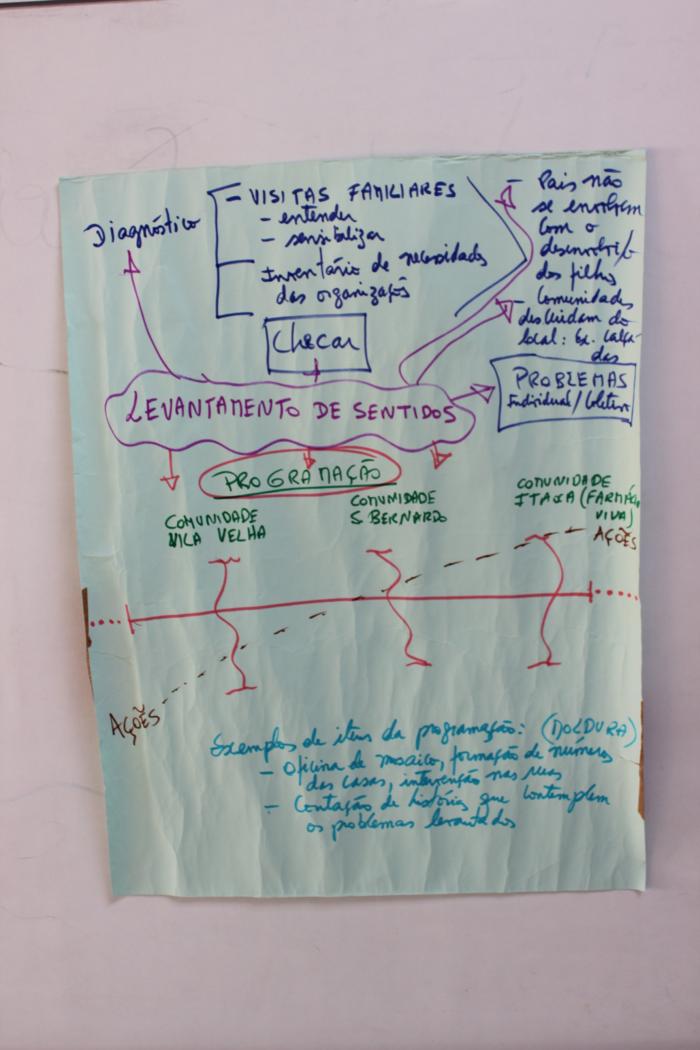 Diagnóstico
- VISITAS FAMILIARES
- entender
- sensibilizar
Inventário de necessidades
das organizaçõs
Checar
- Pais não
se envolvem
com o
desenvolvi/o
dos filhos
- Comunidades
descuidam do
local: Ex. calça
das
PROBLEMAS
Individual/Coletivo
LEVANTAMENTO DE SENTIDOS
PROGRAMAÇÃO
COMUNIDADE
VILA VELHA
COMUNIDADE
S. BERNARDO
COMUNIDADE
(FARMÁCIA
VIVA)
AÇÕES
AÇÕES
Exemplos de itens da programação: (MOLDURA)
- Oficina de mosaico, formação de números
das casas, intervenção nas ruas
- Contação de história que contemplem
os problemas levantados